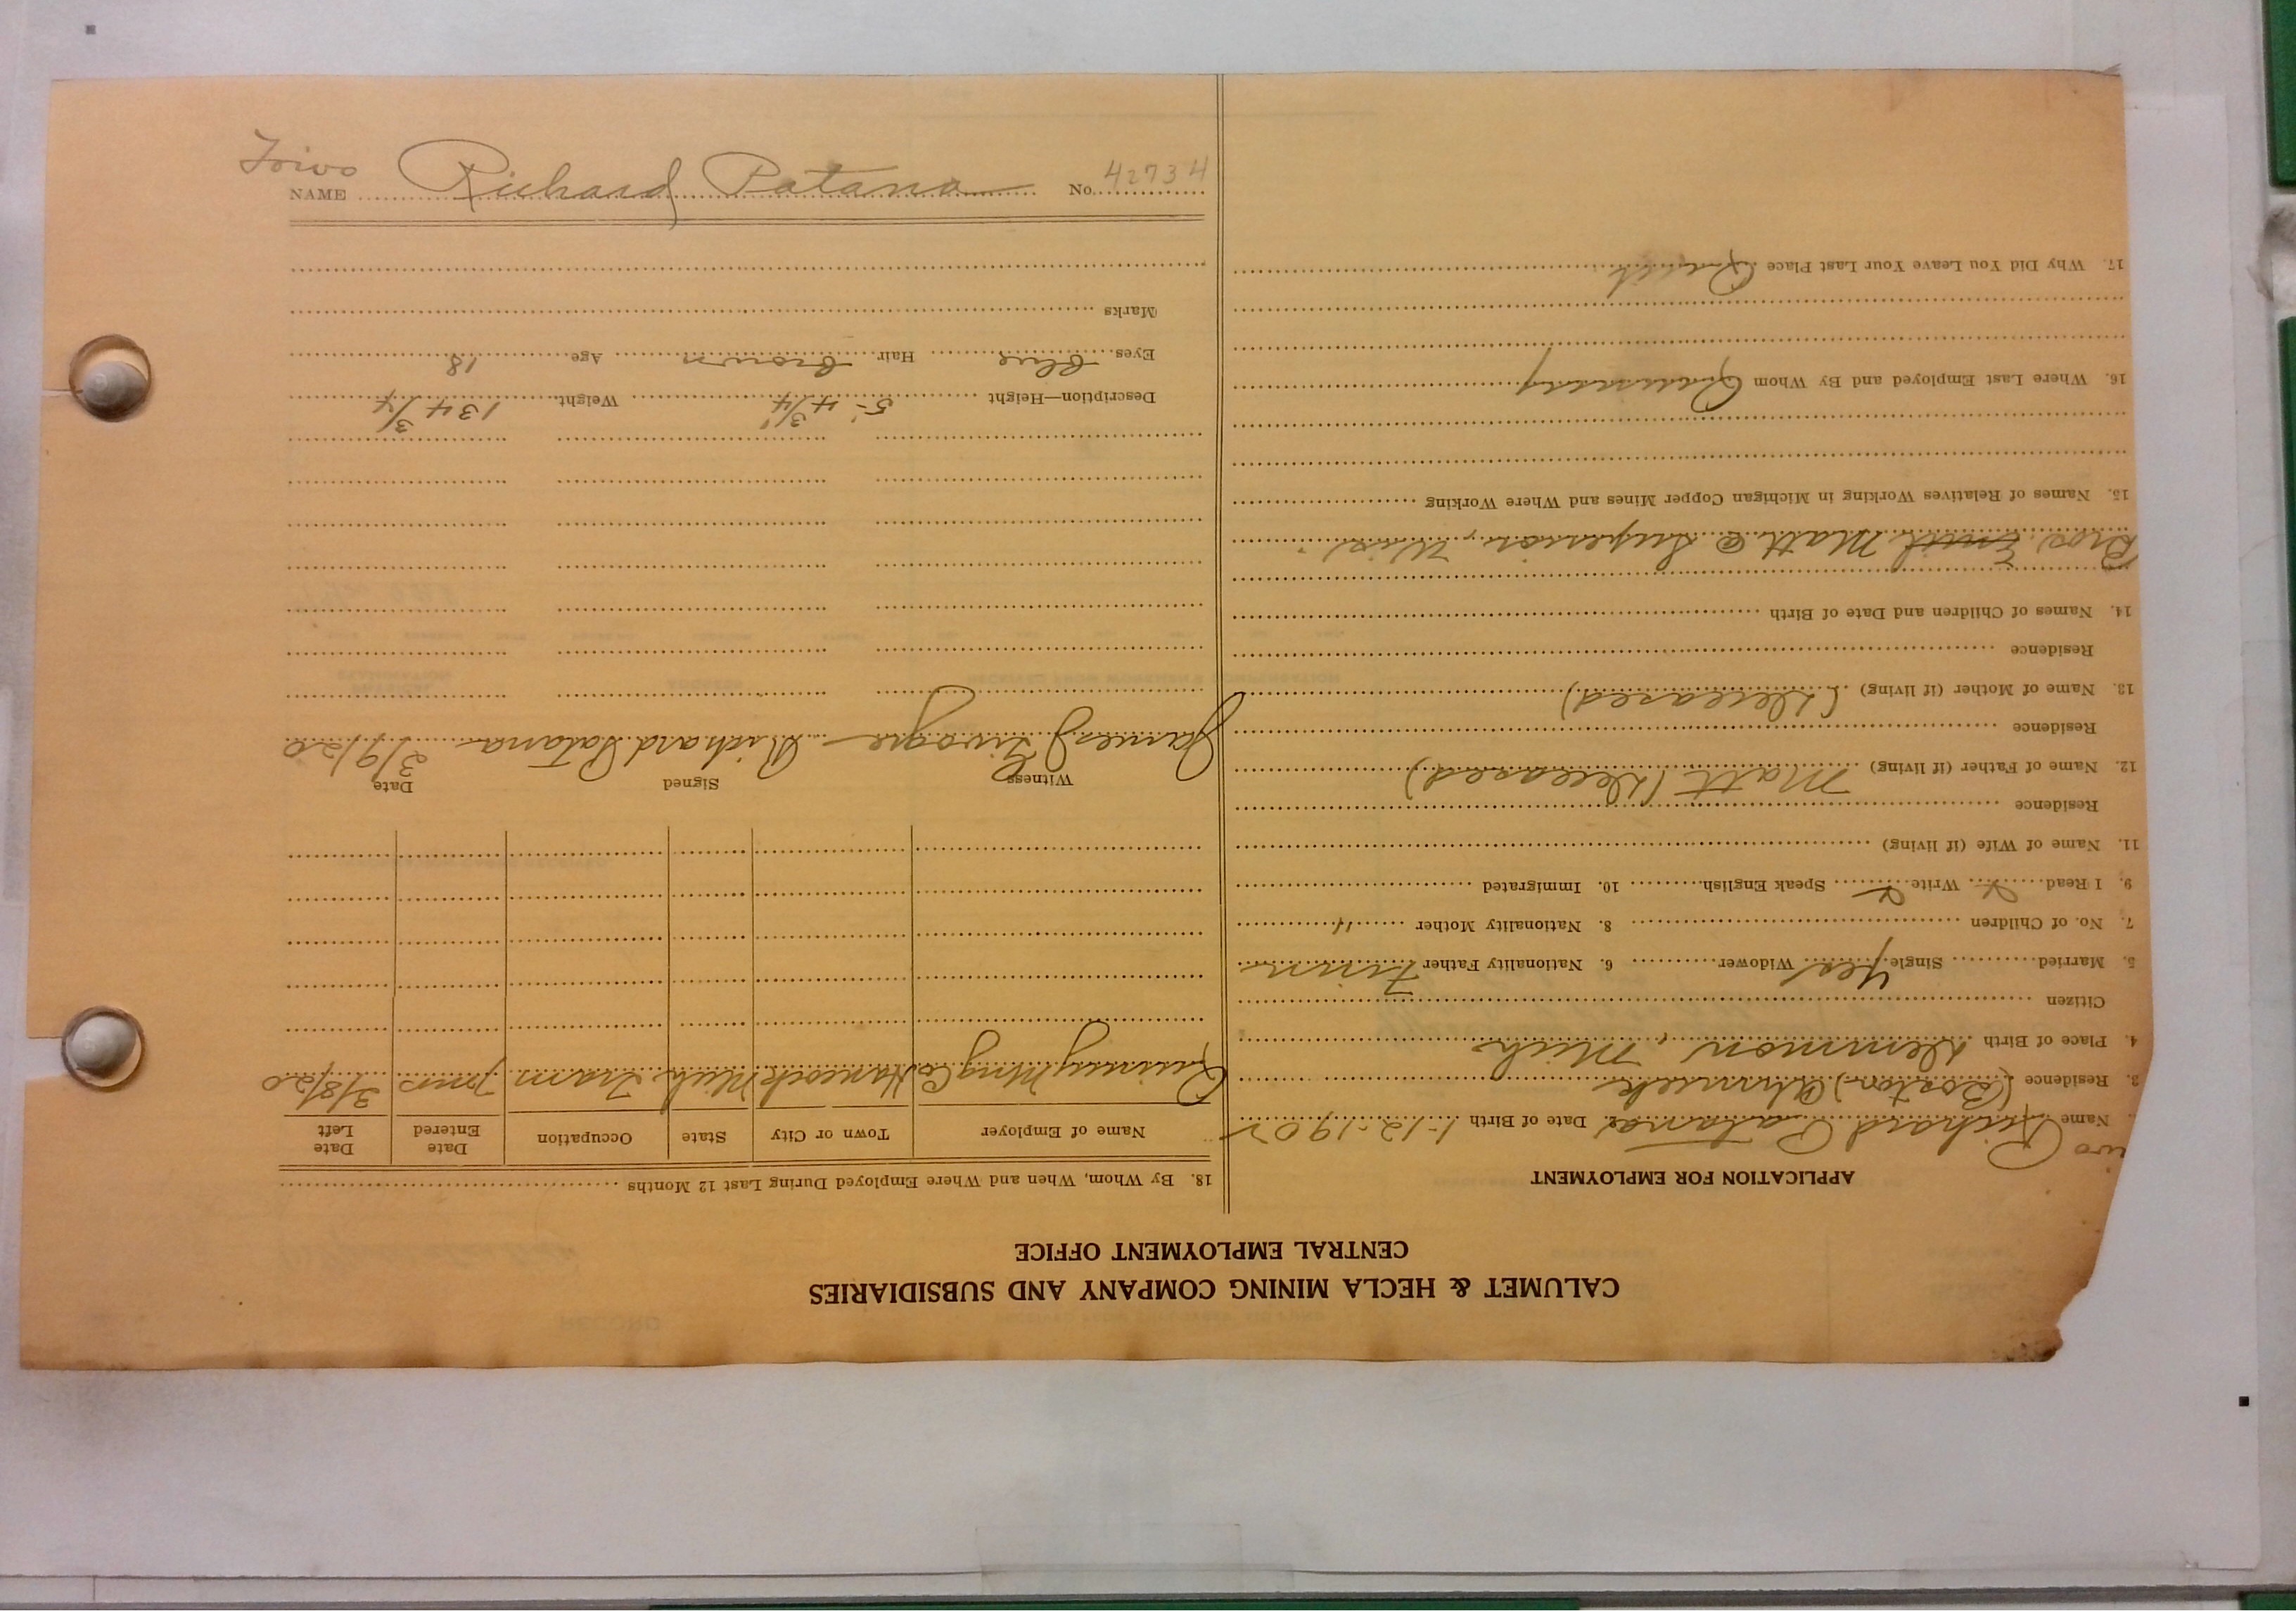 CALUMET & HECLA MINING COMPANY AND SUBSIDIARIES
CENTRAL EMPLOYMENT OFFICE
APPLICATION FOR EMPLOYMENT
ivo
Name Richard Patana 2. Date of Birth 1-12-1902
3. Residence (Boston) Ahmeek
4. Place of Birth Demmon, Mich
Citizen
5. Married Single Yes Widower 6. Nationality Father Finn
7. No. of Children 8. Nationality Mother "
9. I Read x Write x Speak English 10. Immigrated
11. Name of Wife (if living)
Residence
12. Name of Father (if living) Matt (Deceased)
Residence
13. Name of Mother (if living) (Deceased)
Residence
14. Names of Children and Date of Birth
Bros. Emil Matt @ Superior, Wis.
15. Names of Relatives Working in Michigan Copper Mines and Where Working
16. Where Last Employed and By Whom Quincy
17. Why Did You Leave Your Last Place Quit
18. By Whom, When and Where Employed During Last 12 Months
Name of Employer Town or City State Occupation Date Entered Date Left
Quincy Mng Co Hancock Mich Tram 7 mos 3/8/20
Witness Signed Date
James Richard Patana 3/9/20
Description—Height 5'-4 3/4" Weight 134 3/4
Eyes Blue Hair Brown Age 18
Marks
Toivo
NAME Richard Patana No. 42734